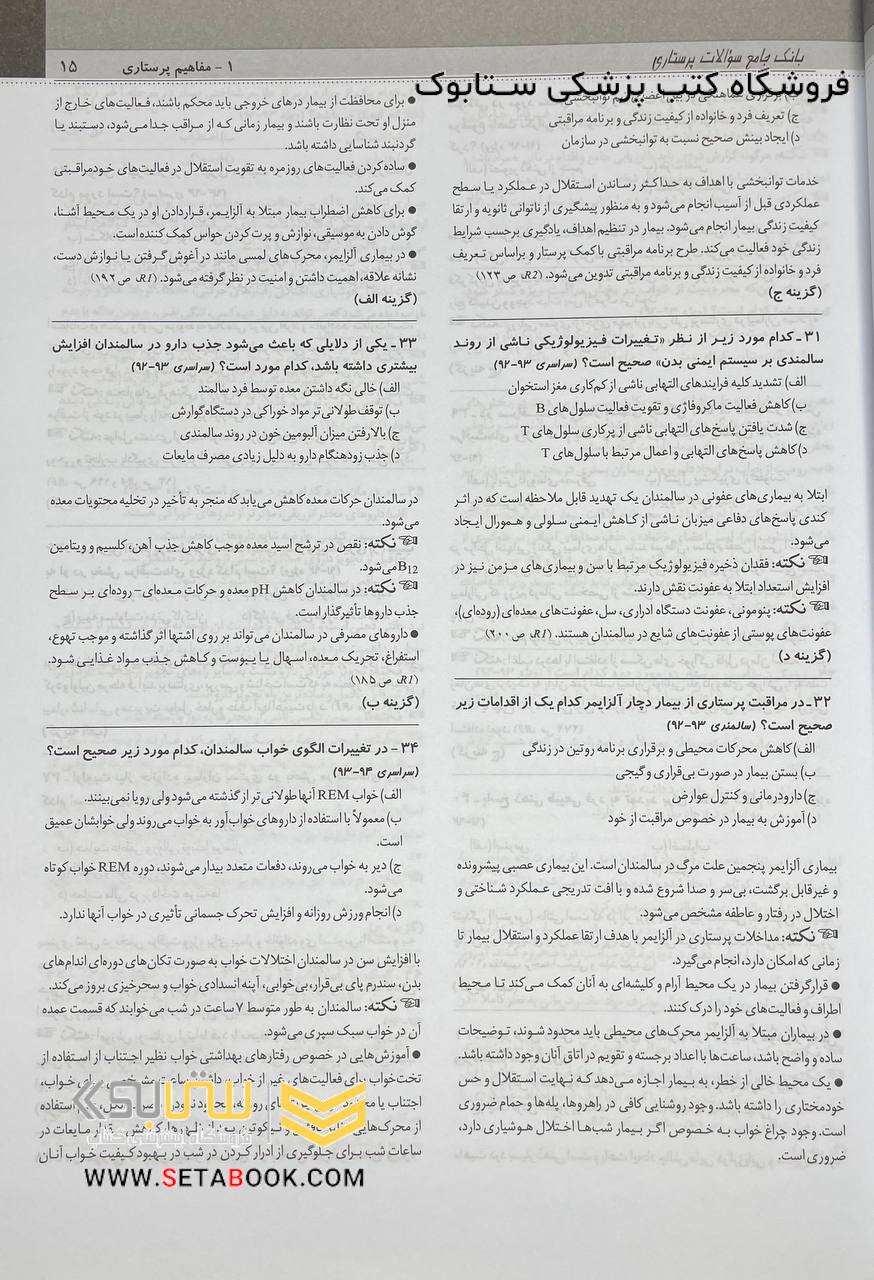 بانک جامع سؤالات پرستاری
۱ - مفاهیم پرستاری ۱۵
فروشگاه کتب پزشکی ستابوک
ج) تعریف فرد و خانواده از کیفیت زندگی و برنامه مراقبتی
د) ایجاد بینش صحیح نسبت به توانبخشی در سازمان
خدمات توانبخشی با اهداف به حداکثر رساندن استقلال در عملکرد یا سطح
عملکردی قبل از آسیب انجام می‌شود و به منظور پیشگیری از ناتوانی ثانویه و ارتقا
کیفیت زندگی بیمار انجام می‌شود. بیمار در تنظیم اهداف، یادگیری برحسب شرایط
زندگی خود فعالیت می‌کند. طرح برنامه مراقبتی با کمک پرستار و براساس تعریف
فرد و خانواده از کیفیت زندگی و برنامه مراقبتی تدوین می‌شود. (R2، ص ۱۲۳)
(گزینه ج)
۳۱ ـ کدام مورد زیر از نظر «تغییرات فیزیولوژیکی ناشی از روند
سالمندی بر سیستم ایمنی بدن» صحیح است؟ (سراسری ۹۳-۹۲)
الف) تشدید کلیه فرایندهای التهابی ناشی از کم‌کاری مغز استخوان
ب) کاهش فعالیت ماکروفاژی و تقویت فعالیت سلول‌های B
ج) شدت یافتن پاسخ‌های التهابی ناشی از پرکاری سلول‌های T
د) کاهش پاسخ‌های التهابی و اعمال مرتبط با سلول‌های T
ابتلا به بیماری‌های عفونی در سالمندان یک تهدید قابل ملاحظه است که در اثر
کندی پاسخ‌های دفاعی میزبان ناشی از کاهش ایمنی سلولی و همورال ایجاد
می‌شود.
نکته: فقدان ذخیره فیزیولوژیک مرتبط با سن و بیماری‌های مزمن نیز در
افزایش استعداد ابتلا به عفونت نقش دارند.
نکته: پنومونی، عفونت دستگاه ادراری، سل، عفونت‌های معده‌ای (روده‌ای)،
عفونت‌های پوستی از عفونت‌های شایع در سالمندان هستند. (R1، ص ۲۰۰)
(گزینه د)
۳۲ ـ در مراقبت پرستاری از بیمار دچار آلزایمر کدام یک از اقدامات زیر
صحیح است؟ (سالمندی ۹۳-۹۲)
الف) کاهش محرکات محیطی و برقراری برنامه روتین در زندگی
ب) بستن بیمار در صورت بی‌قراری و گیجی
ج) دارودرمانی و کنترل عوارض
د) آموزش به بیمار در خصوص مراقبت از خود
بیماری آلزایمر پنجمین علت مرگ در سالمندان است. این بیماری عصبی پیشرونده
و غیرقابل برگشت، بی‌سر و صدا شروع شده و با افت تدریجی عملکرد شناختی و
اختلال در رفتار و عاطفه مشخص می‌شود.
نکته: مداخلات پرستاری در آلزایمر با هدف ارتقا عملکرد و استقلال بیمار تا
زمانی که امکان دارد، انجام می‌گیرد.
● قرارگرفتن بیمار در یک محیط آرام و کلیشه‌ای به آنان کمک می‌کند تا محیط
اطراف و فعالیت‌های خود را درک کنند.
● در بیماران مبتلا به آلزایمر محرک‌های محیطی باید محدود شوند، توضیحات
ساده و واضح باشد، ساعت‌ها با اعداد برجسته و تقویم در اتاق آنان وجود داشته باشد.
● یک محیط خالی از خطر، به بیمار اجازه می‌دهد که نهایت استقلال و حس
خودمختاری را داشته باشد. وجود روشنایی کافی در راهروها، پله‌ها و حمام ضروری
است. وجود چراغ خواب به خصوص اگر بیمار شب‌ها اختلال هوشیاری دارد،
ضروری است.
● برای محافظت از بیمار درهای خروجی باید محکم باشند، فعالیت‌های خارج از
منزل او تحت نظارت باشند و بیمار زمانی که از مراقب جدا می‌شود، دستبند یا
گردنبند شناسایی داشته باشد.
● ساده کردن فعالیت‌های روزمره به تقویت استقلال در فعالیت‌های خودمراقبتی
کمک می‌کند.
● برای کاهش اضطراب بیمار مبتلا به آلزایمر، قراردادن او در یک محیط آشنا،
گوش دادن به موسیقی، نوازش و پرت کردن حواس کمک کننده است.
● در بیماری آلزایمر، محرک‌های لمسی مانند در آغوش گرفتن یا نوازش دست،
نشانه علاقه، اهمیت داشتن و امنیت در نظر گرفته می‌شود. (R1، ص ۱۹۲)
(گزینه الف)
۳۳ ـ یکی از دلایلی که باعث می‌شود جذب دارو در سالمندان افزایش
بیشتری داشته باشد، کدام مورد است؟ (سراسری ۹۳-۹۲)
الف) خالی نگه داشتن معده توسط فرد سالمند
ب) توقف طولانی‌تر مواد خوراکی در دستگاه گوارش
ج) بالا رفتن میزان آلبومین خون در روند سالمندی
د) جذب زودهنگام دارو به دلیل زیادی مصرف مایعات
در سالمندان حرکات معده کاهش می‌یابد که منجر به تأخیر در تخلیه محتویات معده
می‌شود.
نکته: نقص در ترشح اسید معده موجب کاهش جذب آهن، کلسیم و ویتامین
B12 می‌شود.
نکته: در سالمندان کاهش pH معده و حرکات معده‌ای - روده‌ای بر سطح
جذب داروها تأثیرگذار است.
● داروهای مصرفی در سالمندان می‌تواند بر روی اشتها اثر گذاشته و موجب تهوع،
استفراغ، تحریک معده، اسهال یا یبوست و کاهش جذب مواد غذایی شود.
(R1، ص ۱۸۵)
(گزینه ب)
۳۴ - در تغییرات الگوی خواب سالمندان، کدام مورد زیر صحیح است؟
(سراسری ۹۴-۹۳)
الف) خواب REM آنها طولانی‌تر از گذشته می‌شود ولی رویا نمی‌بینند.
ب) معمولاً با استفاده از داروهای خواب‌آور به خواب می‌روند ولی خوابشان عمیق
است.
ج) دیر به خواب می‌روند، دفعات متعدد بیدار می‌شوند، دوره REM خواب کوتاه
می‌شود.
د) انجام ورزش روزانه و افزایش تحرک جسمانی تأثیری در خواب آنها ندارد.
با افزایش سن در سالمندان اختلالات خواب به صورت تکان‌های دوره‌ای اندام‌های
بدن، سندرم پای بی‌قرار، بی‌خوابی، آپنه انسدادی خواب و سحرخیزی بروز می‌کند.
نکته: سالمندان به طور متوسط ۷ ساعت در شب می‌خوابند که قسمت عمده
آن در خواب سبک سپری می‌شود.
● آموزش‌هایی در خصوص رفتارهای بهداشتی خواب نظیر اجتناب از استفاده از
تخت‌خواب برای فعالیت‌های غیر از خواب، خواب،
اجتناب یا استفاده
از محرک‌هایی مایعات در
ساعات شب برای جلوگیری از ادرار کردن در شب در بهبود کیفیت خواب آنان
ستابوک
فروشگاه اینترنتی کتاب
WWW.SETABOOK.COM